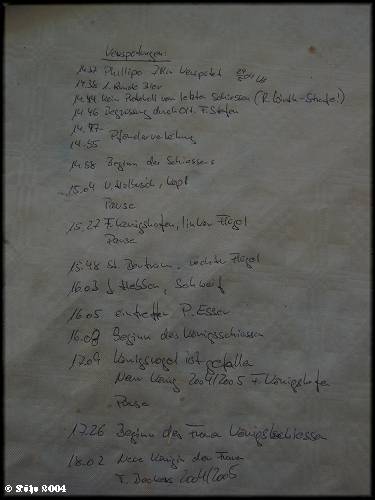 Verspätungen:
14.37 Phillipo 2Rn Verspätet
14.38 1. Runde Bier
14.44 Kein Protokoll vom letzten Schiessen (R. -Strafe!)
14.46 Begrüssung durch F. Stefan
14.47-
14.55 Pfänderverlosung
14.58 Beginn des Schiessens
15.04 Kopf
Pause
15.27 F. Königshofen, linker Flügel
Pause
15.48 St. rechter Flügel
16.03 Schweif
16.05 eintreffen P. Esser
16.08 Beginn des Königsschiessen
17.09 Königsvogel ist gefallen
Neuer König 2004/2005 F. Königshofen
Pause
17.26 Beginn des Frauen Königsschiessen
18.02 Neue Königin der Frauen
T. Dackers 2004/2005
© 2004